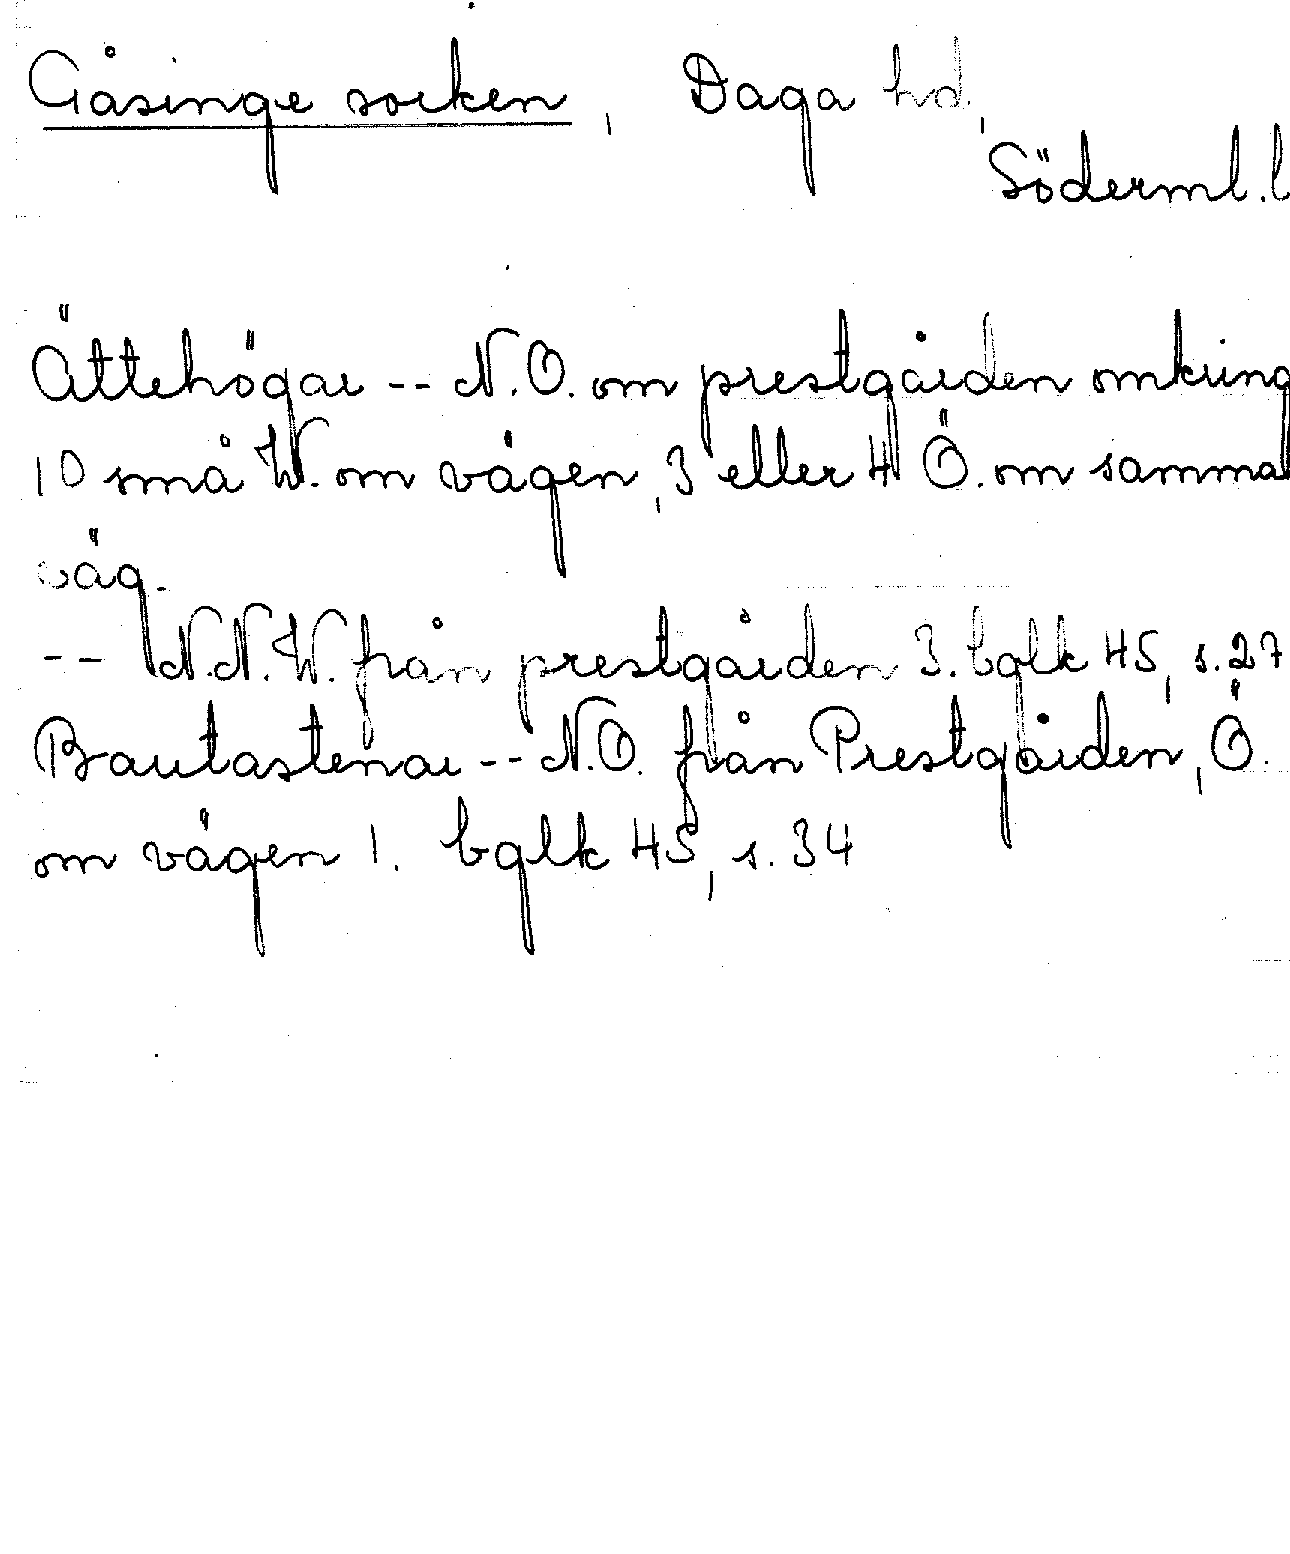 Gåsinge socken, Daga hd,
Söderml. l
Ättehögar -- N.O. om prestgården omkring
10 små W. om vägen, 3 eller 4 Ö. om samma
väg.
-- N.N.W. från prestgården 3. bglk 45, s. 27
Bautastenar -- N.O. från Prestgården, Ö.
om vägen 1. bglk 45, s. 34